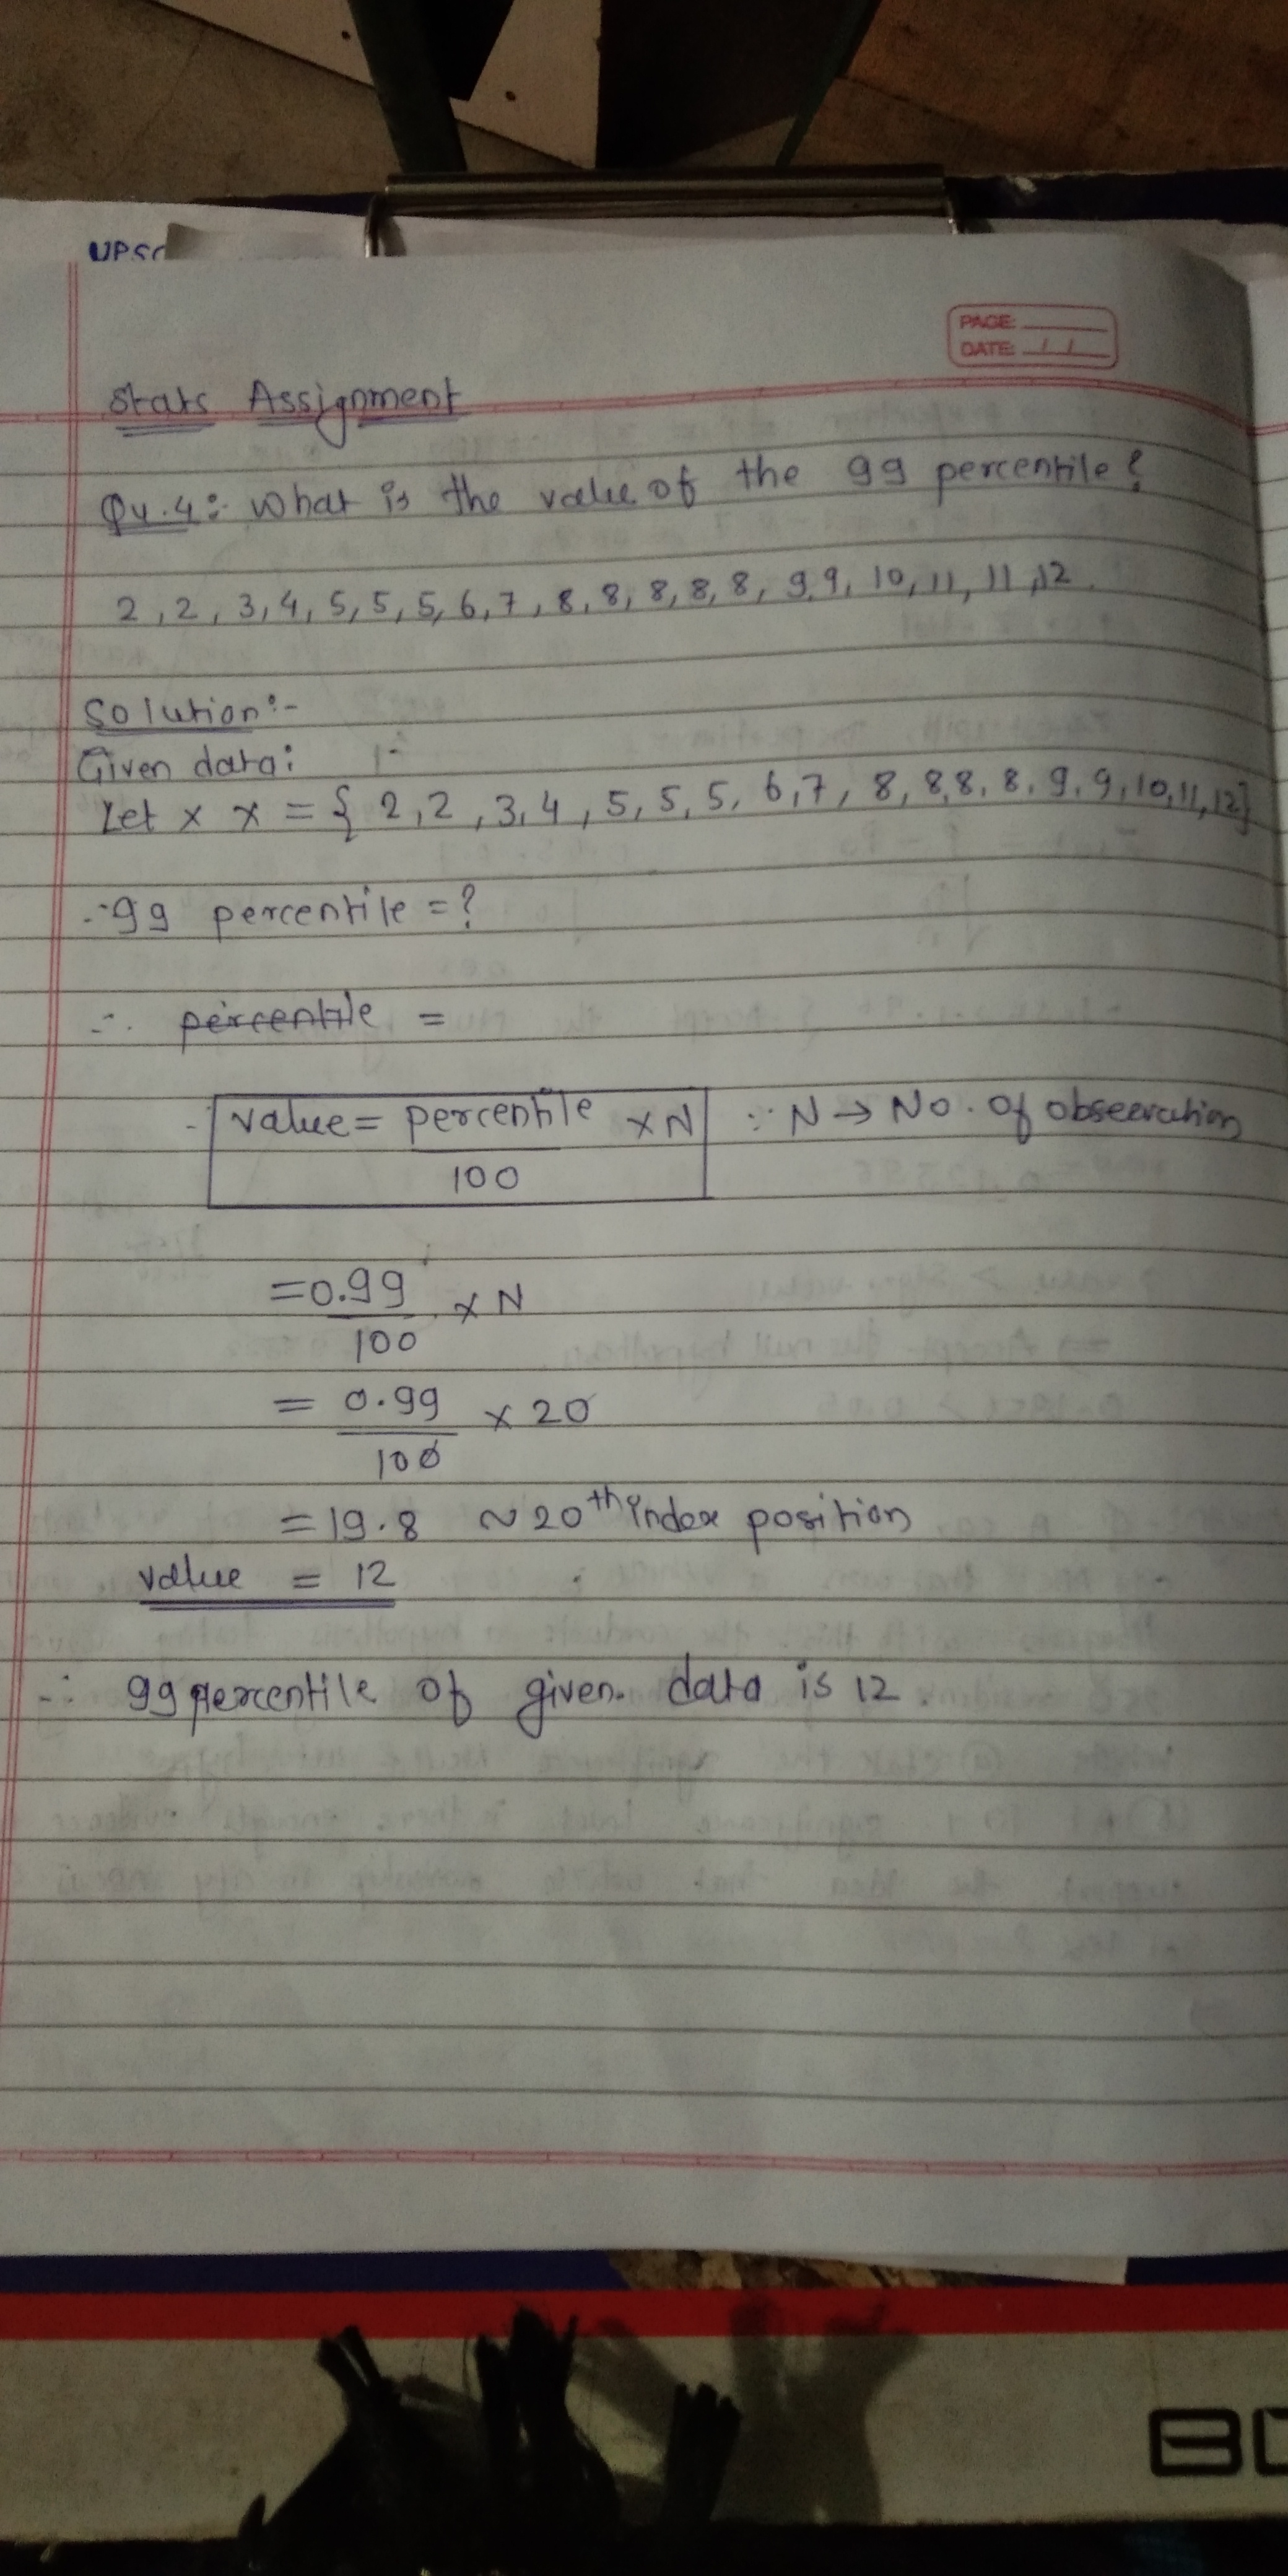 UPSC
PAGE:
DATE: / /
Stats Assignment
Qu.4:- What is the value of the 99 percentile?
2, 2, 3, 4, 5, 5, 5, 6, 7, 8, 8, 8, 8, 8, 9, 9, 10, 11, 11, 12
Solution:-
Given data:
Let x x = { 2, 2, 3, 4, 5, 5, 5, 6, 7, 8, 8, 8, 8, 9, 9, 10, 11, 12}
∴ 99 percentile = ?
∴ percentile =
value = percentile × N ∵ N → No. of observation
100
= 0.99 × N
100
= 0.99 × 20
100
= 19.8 ~ 20th index position
value = 12
∴ 99 percentile of given data is 12